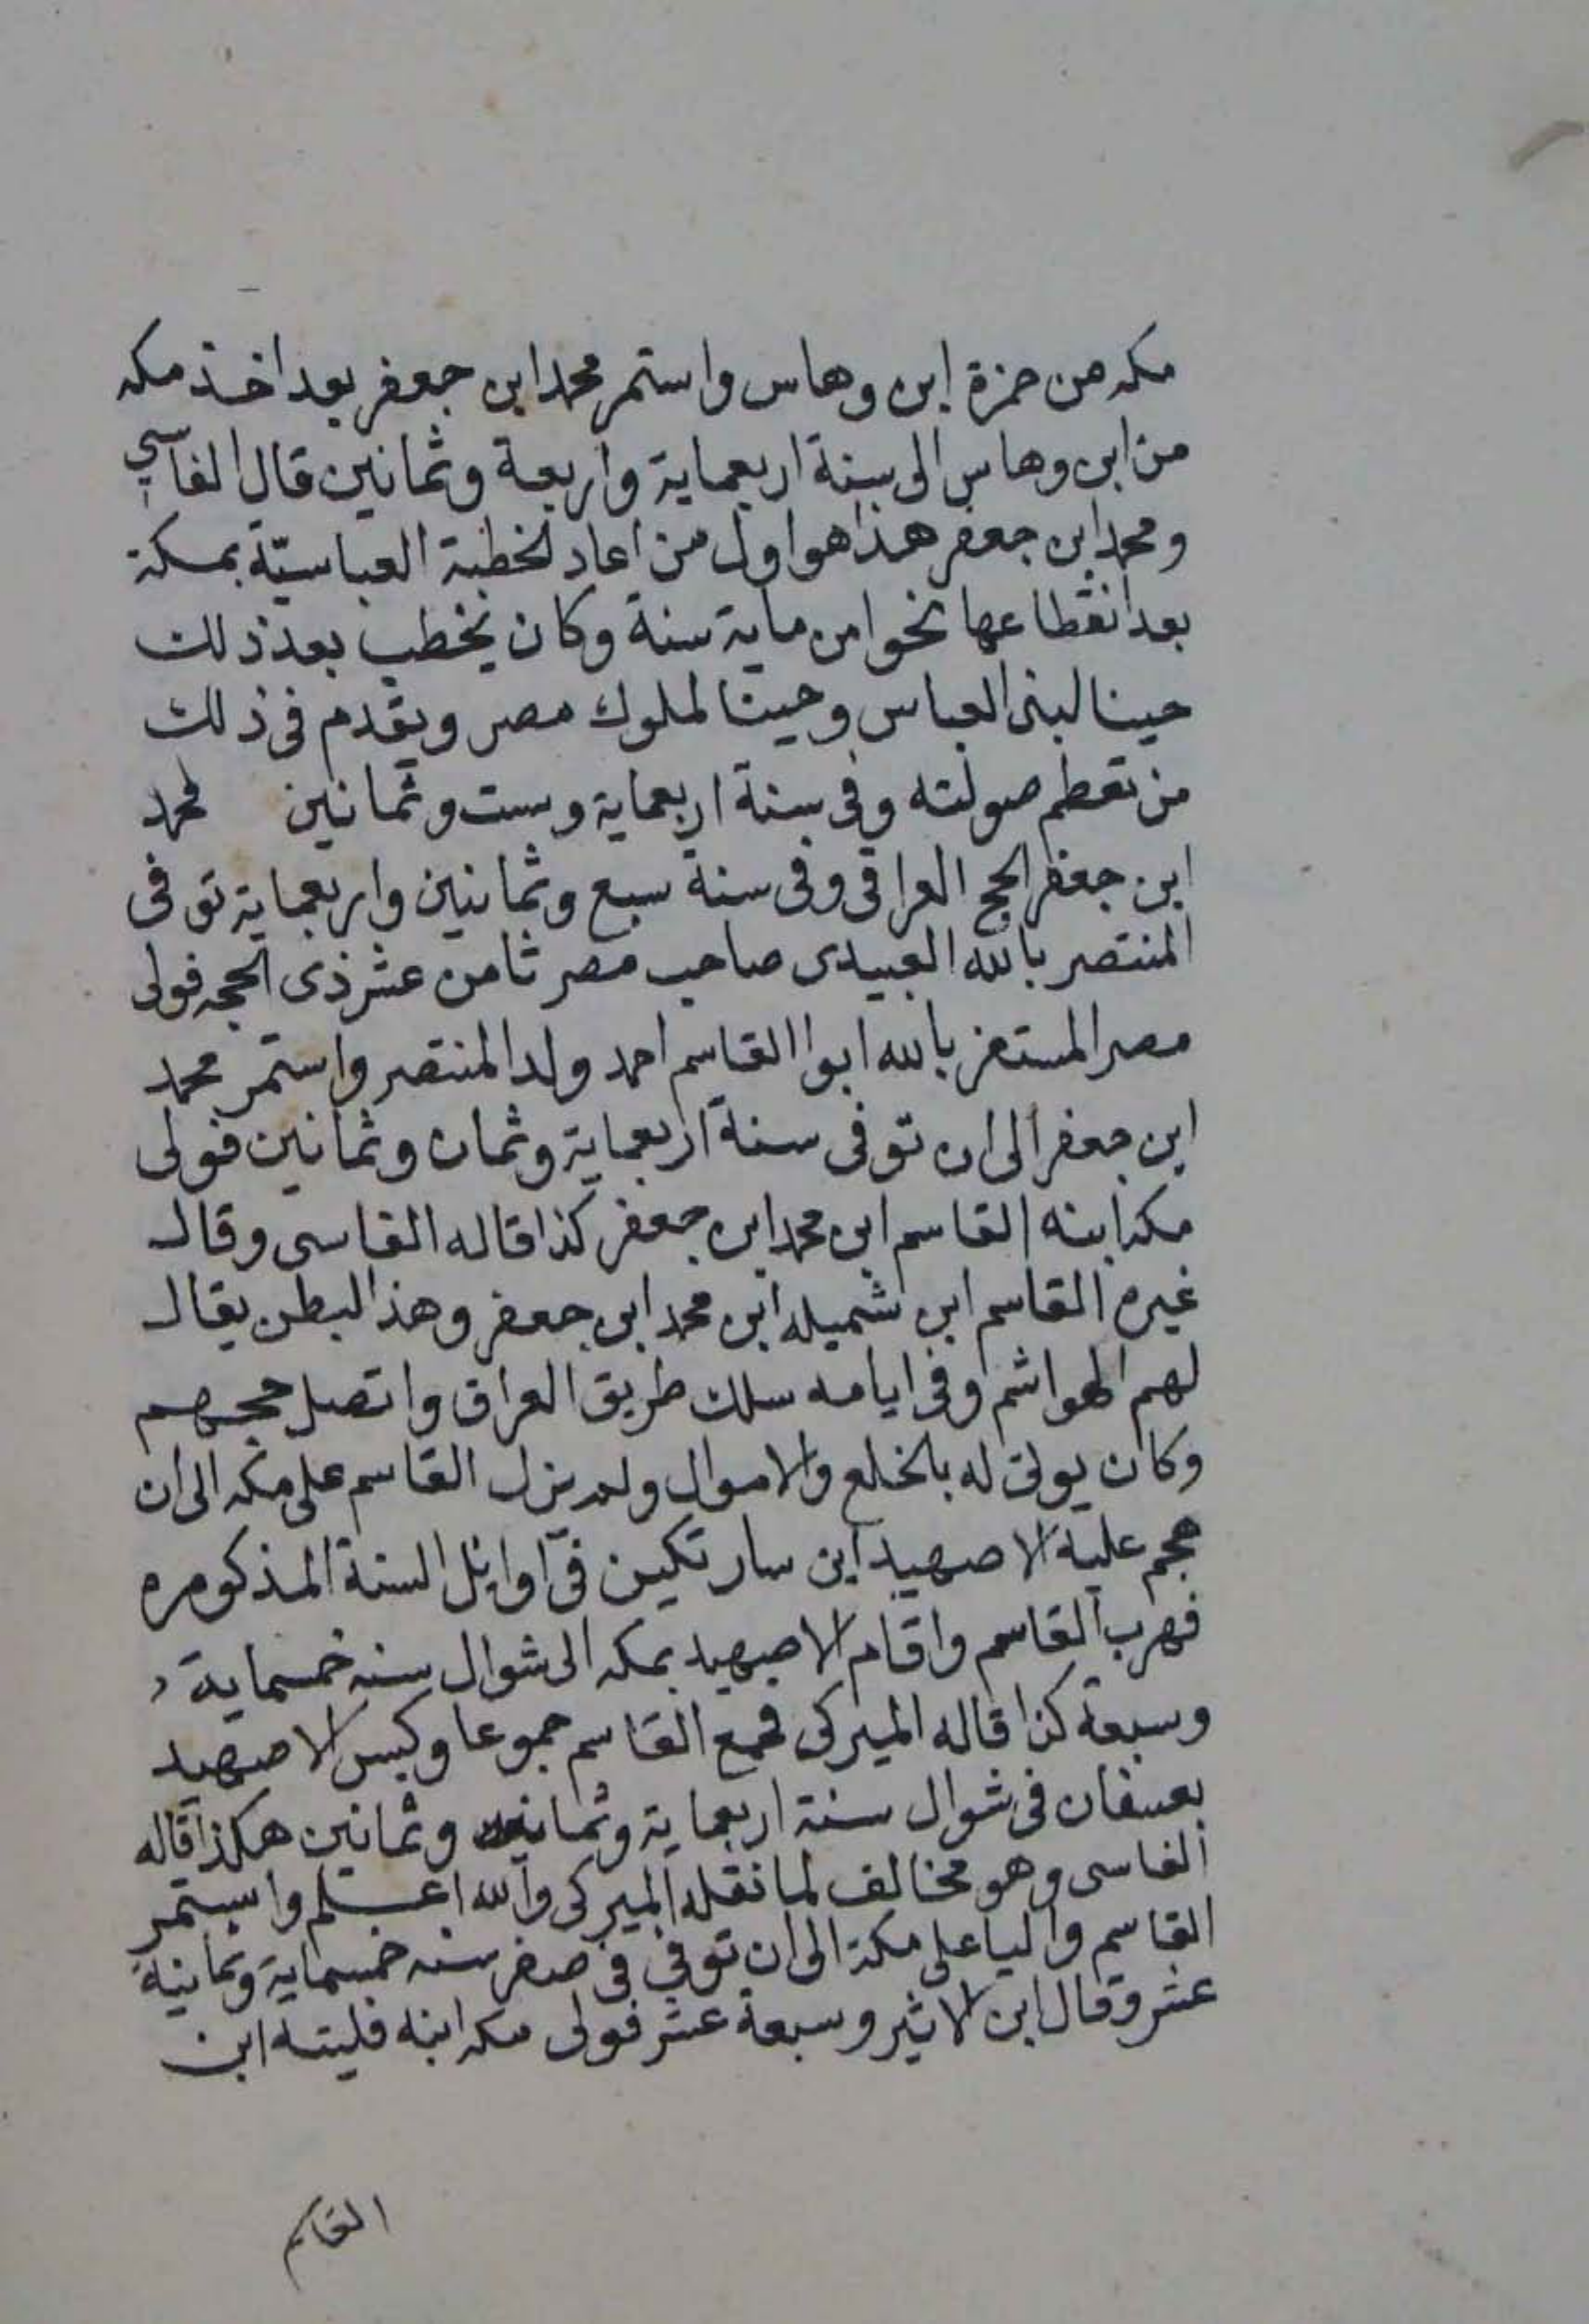 مكه من حمزة ابن وهاس واستمر محمد ابن جعفر بعد اخذ مكه
من ابن وهاس الى سنة اربعماية واربعة وثمانين قال الفاسي
ومحمد ابن جعفر هذا هو اول من اعاد لخطبة العباسيّة بمكة
بعد انقطاعها نحوا من ماية سنة وكان يخطب بعد ذلك
حينا لبنى العباس وحينا لملوك مصر ويقدم فى ذلك
من تعظم صولته وفى سنة اربعماية وست وثمانين محمد
ابن جعفر الحج العراقى وفى سنة سبع وثمانين واربعماية توفى
المنتصر بالله العبيدى صاحب مصر ثامن عشر ذى الحجه فولى
مصر المستعز بالله ابوا القاسم احمد ولد المنتصر واستمر محمد
ابن جعفر الى ان توفى سنة اربعماية وثمان وثمانين فولى
مكه ابنه القاسم ابن محمد ابن جعفر كذا قاله الفاسى وقال
غيره القاسم ابن شميله ابن محمد ابن جعفر وهذا البطن يقال
لهم الهواشم وفى ايامه سلك طريق العراق واتصل حجهم
وكان يوتى له بالخلع والاموال ولم يزل القاسم على مكه الى ان
هجم عليه الاصهيد ابن سارتكين فى اوائل السنة المذكوره
فهرب القاسم واقام الاصهيد بمكه الى شوال سنه خمسماية
وسبعة كذا قاله الميركى فجمع القاسم جموعا وكبس الاصهيد
بعسفان فى شوال سنة اربعماية وثمانين وثمانين هكذا قاله
الفاسى وهو مخالف لما نقله الميركى والله اعلم واستمر
القاسم واليا على مكة الى ان توفي فى صفر سنه خمسماية وثمانية
عشر وقال ابن الاثير وسبعة عشر فولى مكه ابنه فليته ابن
القاسم